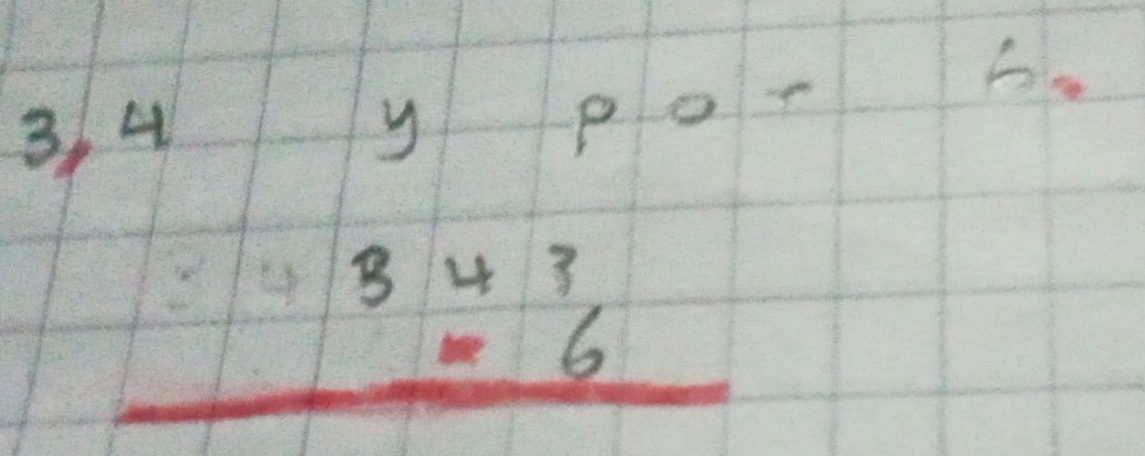 3,4 y por 6.
343
- 6